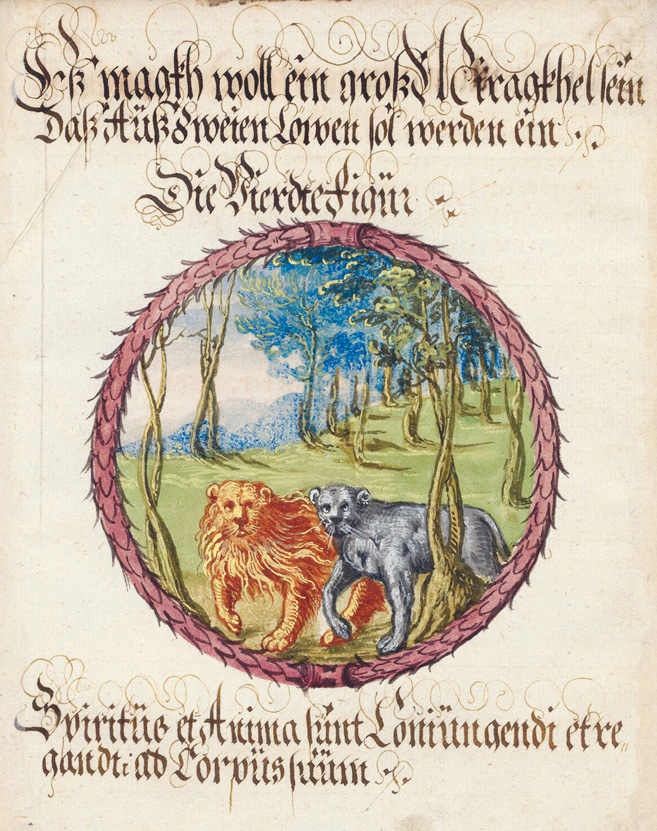 Eß magkh woll ein groß Miragkhel sein
Daß Aüß Zweien Lowen sol werden ein
Die Vierdte Figür
Spiritüs et Anima sünt Coniüngendi et re„
gandi: ad Corpüs süüm